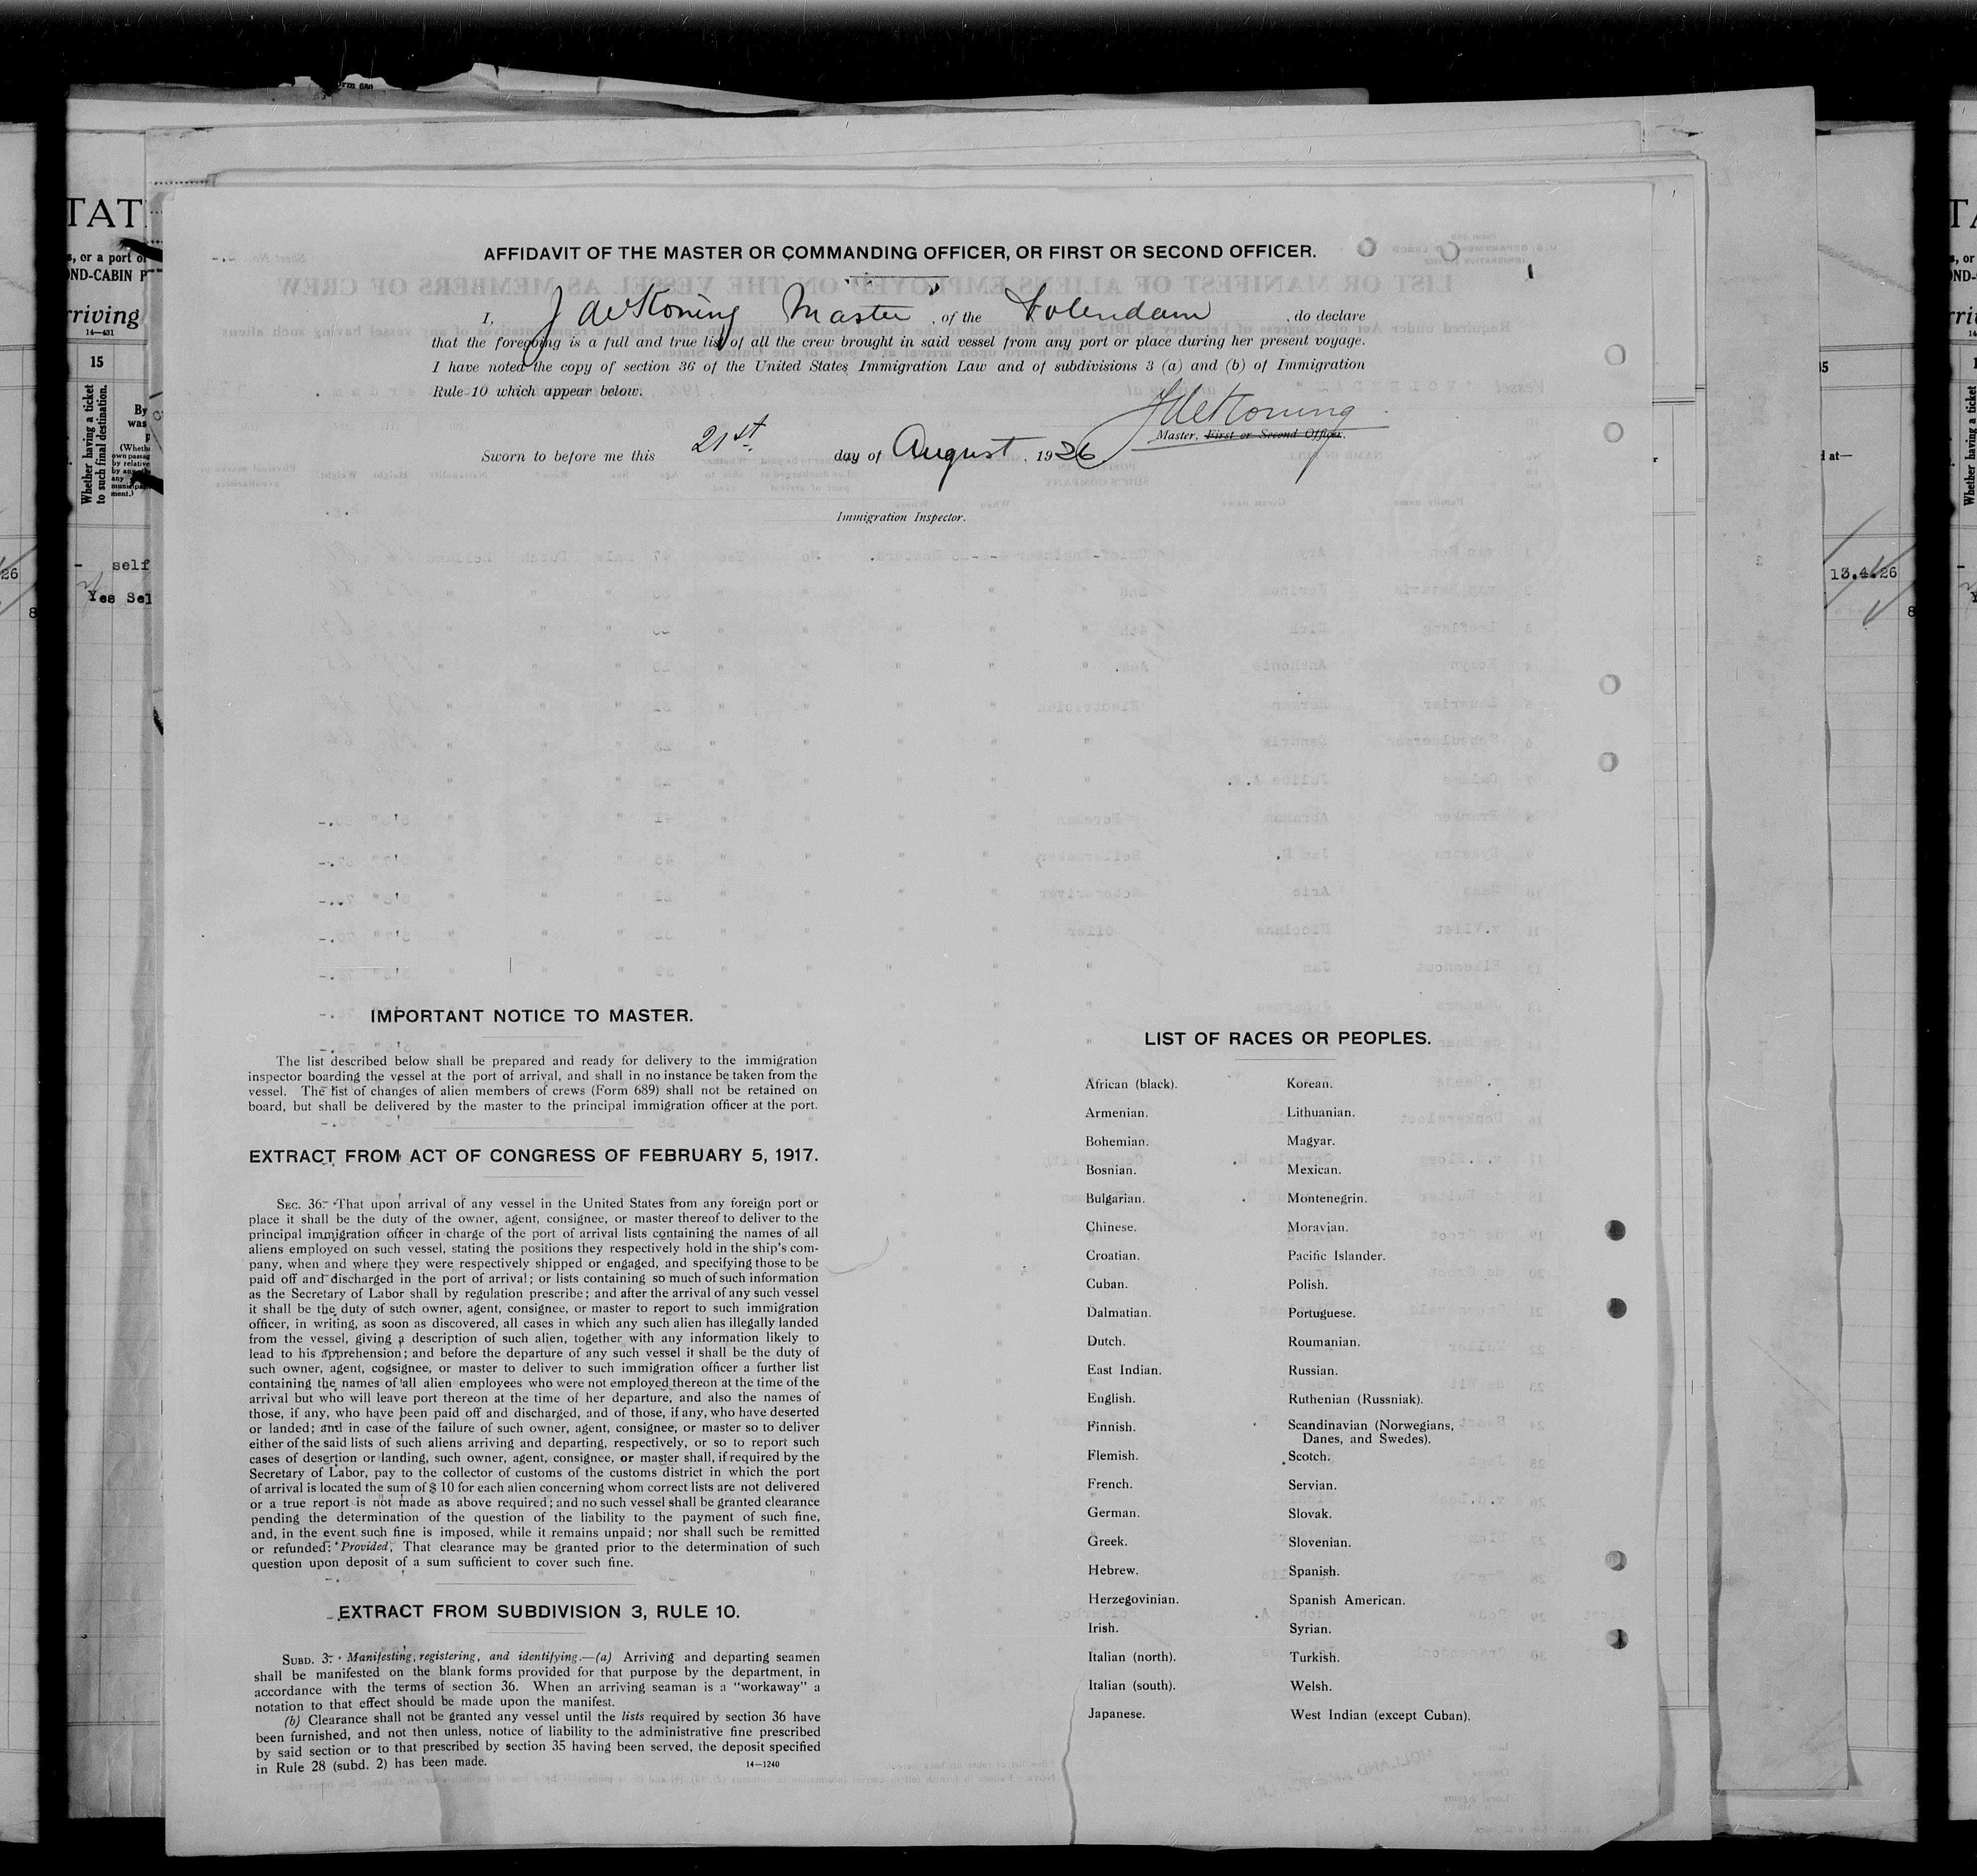 AFFIDAVIT OF THE MASTER OR COMMANDING OFFICER, OR FIRST OR SECOND OFFICER.
I, J de Koning Master, of the Volendam, do declare
that the foregoing is a full and true list of all the crew brought in said vessel from any port or place during her present voyage.
I have noted the copy of section 36 of the United States Immigration Law and of subdivisions 3 (a) and (b) of Immigration
Rule 10 which appear below.
J de Koning
Master, First or Second Officer.
Sworn to before me this 21st. day of August, 1926
Immigration Inspector.
IMPORTANT NOTICE TO MASTER.
The list described below shall be prepared and ready for delivery to the immigration
inspector boarding the vessel at the port of arrival, and shall in no instance be taken from the
vessel. The list of changes of alien members of crews (Form 689) shall not be retained on
board, but shall be delivered by the master to the principal immigration officer at the port.
EXTRACT FROM ACT OF CONGRESS OF FEBRUARY 5, 1917.
SEC. 36. That upon arrival of any vessel in the United States from any foreign port or
place it shall be the duty of the owner, agent, consignee, or master thereof to deliver to the
principal immigration officer in charge of the port of arrival lists containing the names of all
aliens employed on such vessel, stating the positions they respectively hold in the ship's com-
pany, when and where they were respectively shipped or engaged, and specifying those to be
paid off and discharged in the port of arrival; or lists containing so much of such information
as the Secretary of Labor shall by regulation prescribe; and after the arrival of any such vessel
it shall be the duty of such owner, agent, consignee, or master to report to such immigration
officer, in writing, as soon as discovered, all cases in which any such alien has illegally landed
from the vessel, giving a description of such alien, together with any information likely to
lead to his apprehension; and before the departure of any such vessel it shall be the duty of
such owner, agent, cogsignee, or master to deliver to such immigration officer a further list
containing the names of all alien employees who were not employed thereon at the time of the
arrival but who will leave port thereon at the time of her departure, and also the names of
those, if any, who have been paid off and discharged, and of those, if any, who have deserted
or landed; and in case of the failure of such owner, agent, consignee, or master so to deliver
either of the said lists of such aliens arriving and departing, respectively, or so to report such
cases of desertion or landing, such owner, agent, consignee, or master shall, if required by the
Secretary of Labor, pay to the collector of customs of the customs district in which the port
of arrival is located the sum of $ 10 for each alien concerning whom correct lists are not delivered
or a true report is not made as above required; and no such vessel shall be granted clearance
pending the determination of the question of the liability to the payment of such fine,
and, in the event such fine is imposed, while it remains unpaid; nor shall such be remitted
or refunded: Provided, That clearance may be granted prior to the determination of such
question upon deposit of a sum sufficient to cover such fine.
EXTRACT FROM SUBDIVISION 3, RULE 10.
SUBD. 3. Manifesting, registering, and identifying.—(a) Arriving and departing seamen
shall be manifested on the blank forms provided for that purpose by the department, in
accordance with the terms of section 36. When an arriving seaman is a “workaway” a
notation to that effect should be made upon the manifest.
(b) Clearance shall not be granted any vessel until the lists required by section 36 have
been furnished, and not then unless, notice of liability to the administrative fine prescribed
by said section or to that prescribed by section 35 having been served, the deposit specified
in Rule 28 (subd. 2) has been made.
14—1240
LIST OF RACES OR PEOPLES.
African (black).
Armenian.
Bohemian.
Bosnian.
Bulgarian.
Chinese.
Croatian.
Cuban.
Dalmatian.
Dutch.
East Indian.
English.
Finnish.
Flemish.
French.
German.
Greek.
Hebrew.
Herzegovinian.
Irish.
Italian (north).
Italian (south).
Japanese.
Korean.
Lithuanian.
Magyar.
Mexican.
Montenegrin.
Moravian.
Pacific Islander.
Polish.
Portuguese.
Roumanian.
Russian.
Ruthenian (Russniak).
Scandinavian (Norwegians,
Danes, and Swedes).
Scotch.
Servian.
Slovak.
Slovenian.
Spanish.
Spanish American.
Syrian.
Turkish.
Welsh.
West Indian (except Cuban).
15
Whether having a ticket
to such final destination.
self
Yes Sel
13.4.26